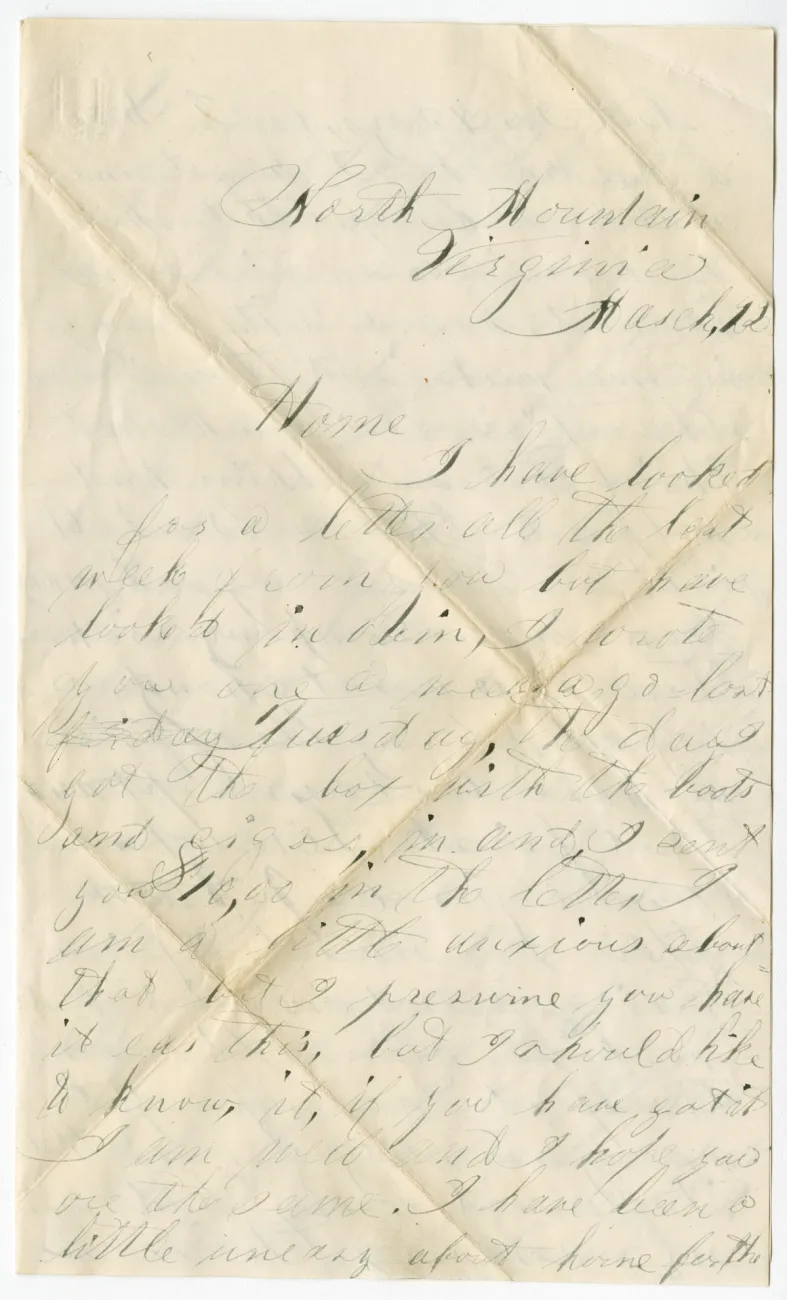 North Mountain
Virginia
March, 12
Home
I have looked
for a letter all the last
week from you but have
looked in vain, I wrote
you one a week ago last
friday Tuesday, the day I
got the box with the boots
and cigars, in and, I sent
you $10,00 in the letter I
am a little anxious about
that but I presume you have
it ear this, but I should like
to know, it, if you have got it
I am well and I hope you
are the same. I have been a
little uneasy about home for the